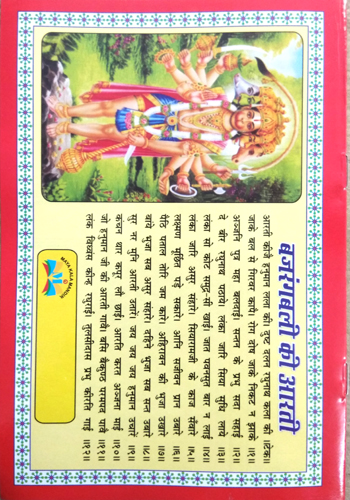 बजरंगबली की आरती
आरती कीजै हनुमान लला की। दुष्ट दलन रघुनाथ कला की ॥टेक॥
जाके बल से गिरवर कांपै। रोग दोष जाके निकट न झांके ॥१॥
अञ्जनि पुत्र महा बलदाई। सन्तन के प्रभु सदा सहाई ॥२॥
दे बीरा रघुनाथ पठाये। लंका जारि सिया सुधि लाये ॥३॥
लंका सो कोट समुद्र-सी खाई। जात पवनसुत बार न लाई ॥४॥
लंका जारि असुर संहारे। सियारामजी के काज संवारे ॥५॥
लक्ष्मण मूर्छित पड़े सकारे। आनि संजीवन प्रान उबारे ॥६॥
पैठि पताल तोरि जम कारे। अहिरावन की भुजा उखारे ॥७॥
बायें भुजा सब असुर संहारे। दहिने भुजा सब सन्त उबारे ॥८॥
सुर नर मुनि आरती उतारें। जय जय जय हनुमान उचारें ॥९॥
कंचन थार कपूर लौ छाई। आरति करत अञ्जना माई ॥१०॥
जो हनुमान जी की आरती गावै। बसि बैकुण्ठ परमपद पावै ॥११॥
लंक विध्वंस कीन्ह रघुराई। तुलसीदास प्रभु कीरति गाई ॥१२॥